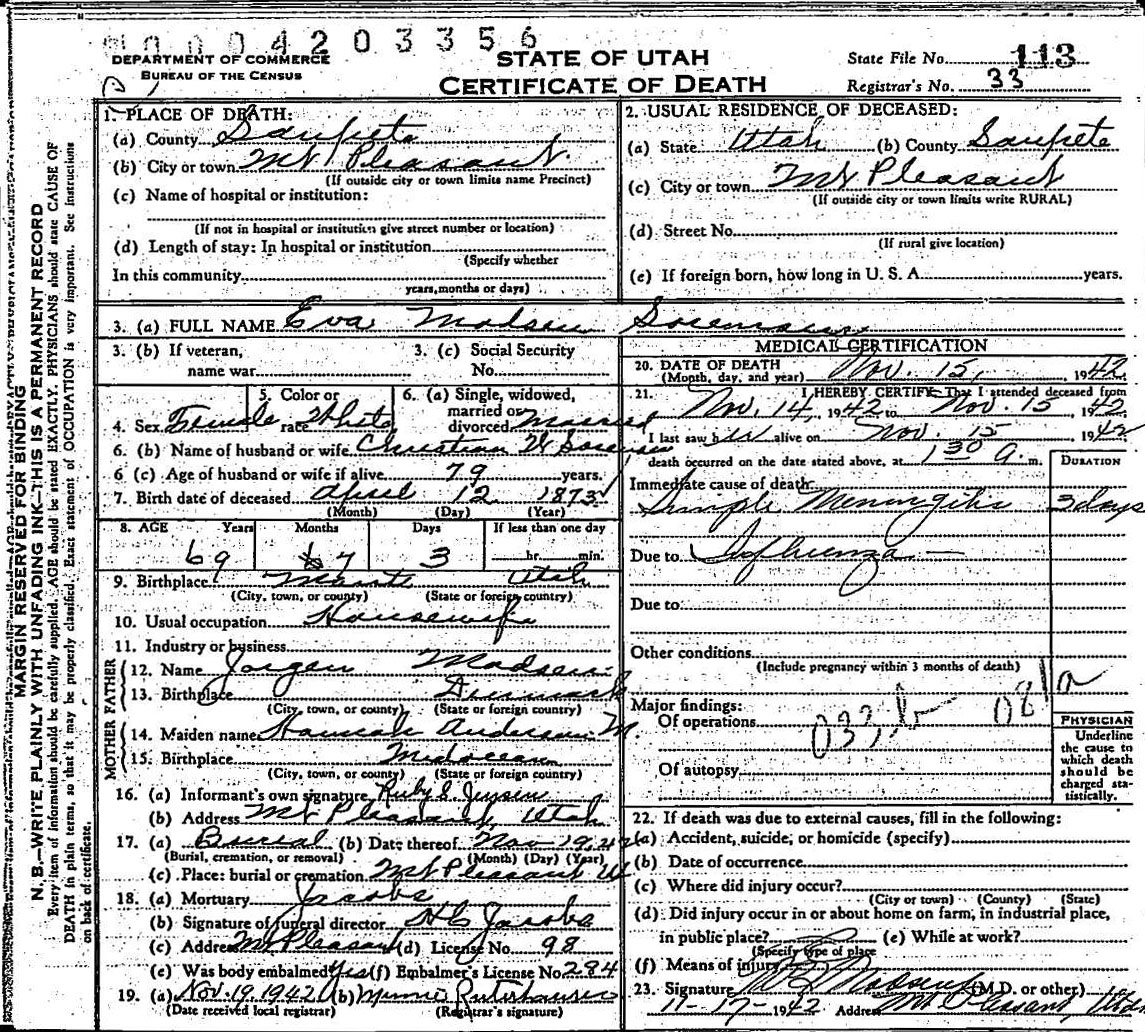 0 0 0 4 2 0 3 3 5 6
DEPARTMENT OF COMMERCE
BUREAU OF THE CENSUS
STATE OF UTAH
CERTIFICATE OF DEATH
State File No. 113
Registrar's No. 33
MARGIN RESERVED FOR BINDING
N. B.—WRITE PLAINLY WITH UNFADING INK—THIS IS A PERMANENT RECORD
Every item of information should be carefully supplied. AGE should be stated EXACTLY. PHYSICIANS should state CAUSE OF
DEATH in plain terms, so that it may be properly classified. Exact statement of OCCUPATION is very important. See instructions
on back of certificate.
1. PLACE OF DEATH:
(a) County Sanpete
(b) City or town Mt Pleasant
(If outside city or town limits name Precinct)
(c) Name of hospital or institution:
(If not in hospital or institution give street number or location)
(d) Length of stay: In hospital or institution
(Specify whether
In this community
years, months or days)
2. USUAL RESIDENCE OF DECEASED:
(a) State Utah (b) County Sanpete
(c) City or town Mt Pleasant
(If outside city or town limits write RURAL)
(d) Street No.
(If rural give location)
(e) If foreign born, how long in U. S. A. years.
3. (a) FULL NAME Eva Madsen Sorensen
3. (b) If veteran, name war
3. (c) Social Security No.
4. Sex Female
5. Color or race White
6. (a) Single, widowed, married or divorced Married
6. (b) Name of husband or wife Christian W Sorensen
6 (c) Age of husband or wife if alive 79 years.
7. Birth date of deceased April 12 1873
(Month) (Day) (Year)
8. AGE Years Months Days If less than one day
69 7 3 hr. min.
9. Birthplace Manti Utah
(City, town, or county) (State or foreign country)
10. Usual occupation Housewife
11. Industry or business
FATHER
12. Name Jorgen Madsen
13. Birthplace Denmark
(City, town, or county) (State or foreign country)
MOTHER
14. Maiden name Hannah Anderson M.
15. Birthplace Midocean
(City, town, or county) (State or foreign country)
16. (a) Informant's own signature Ruby S. Jensen
(b) Address Mt Pleasant, Utah
17. (a) Burial (b) Date thereof Nov 19, 42
(Burial, cremation, or removal) (Month) (Day) (Year)
(c) Place: burial or cremation Mt Pleasant U
18. (a) Mortuary Jacobs
(b) Signature of funeral director H C Jacobs
(c) Address Mt Pleasant (d) License No. 98
(e) Was body embalmed Yes (f) Embalmer's License No 284
19. (a) Nov. 19, 1942 (b) Minnie
(Date received local registrar) (Registrar's signature)
MEDICAL CERTIFICATION
20. DATE OF DEATH Nov. 15, 1942
(Month, day, and year)
21. I HEREBY CERTIFY, That I attended deceased from
Nov. 14, 1942 to Nov. 15 1942
I last saw her alive on Nov. 15 1942
death occurred on the date stated above, at 1 30 A. m.
DURATION
Immediate cause of death
Simple Meningitis 3 days
Due to Influenza
Due to:
Other conditions
(Include pregnancy within 3 months of death)
Major findings:
Of operations
033,b 081a
Of autopsy
PHYSICIAN
Underline
the cause to
which death
should be
charged sta-
tistically.
22. If death was due to external causes, fill in the following:
(a) Accident, suicide, or homicide (specify)
(b) Date of occurrence
(c) Where did injury occur?
(City or town) (County) (State)
(d) Did injury occur in or about home on farm, in industrial place,
in public place? (e) While at work?
(Specify type of place
(f) Means of injury
23. Signature Madsen (M.D. or other)
11-17-1942 Address Mt. Pleasant, Utah